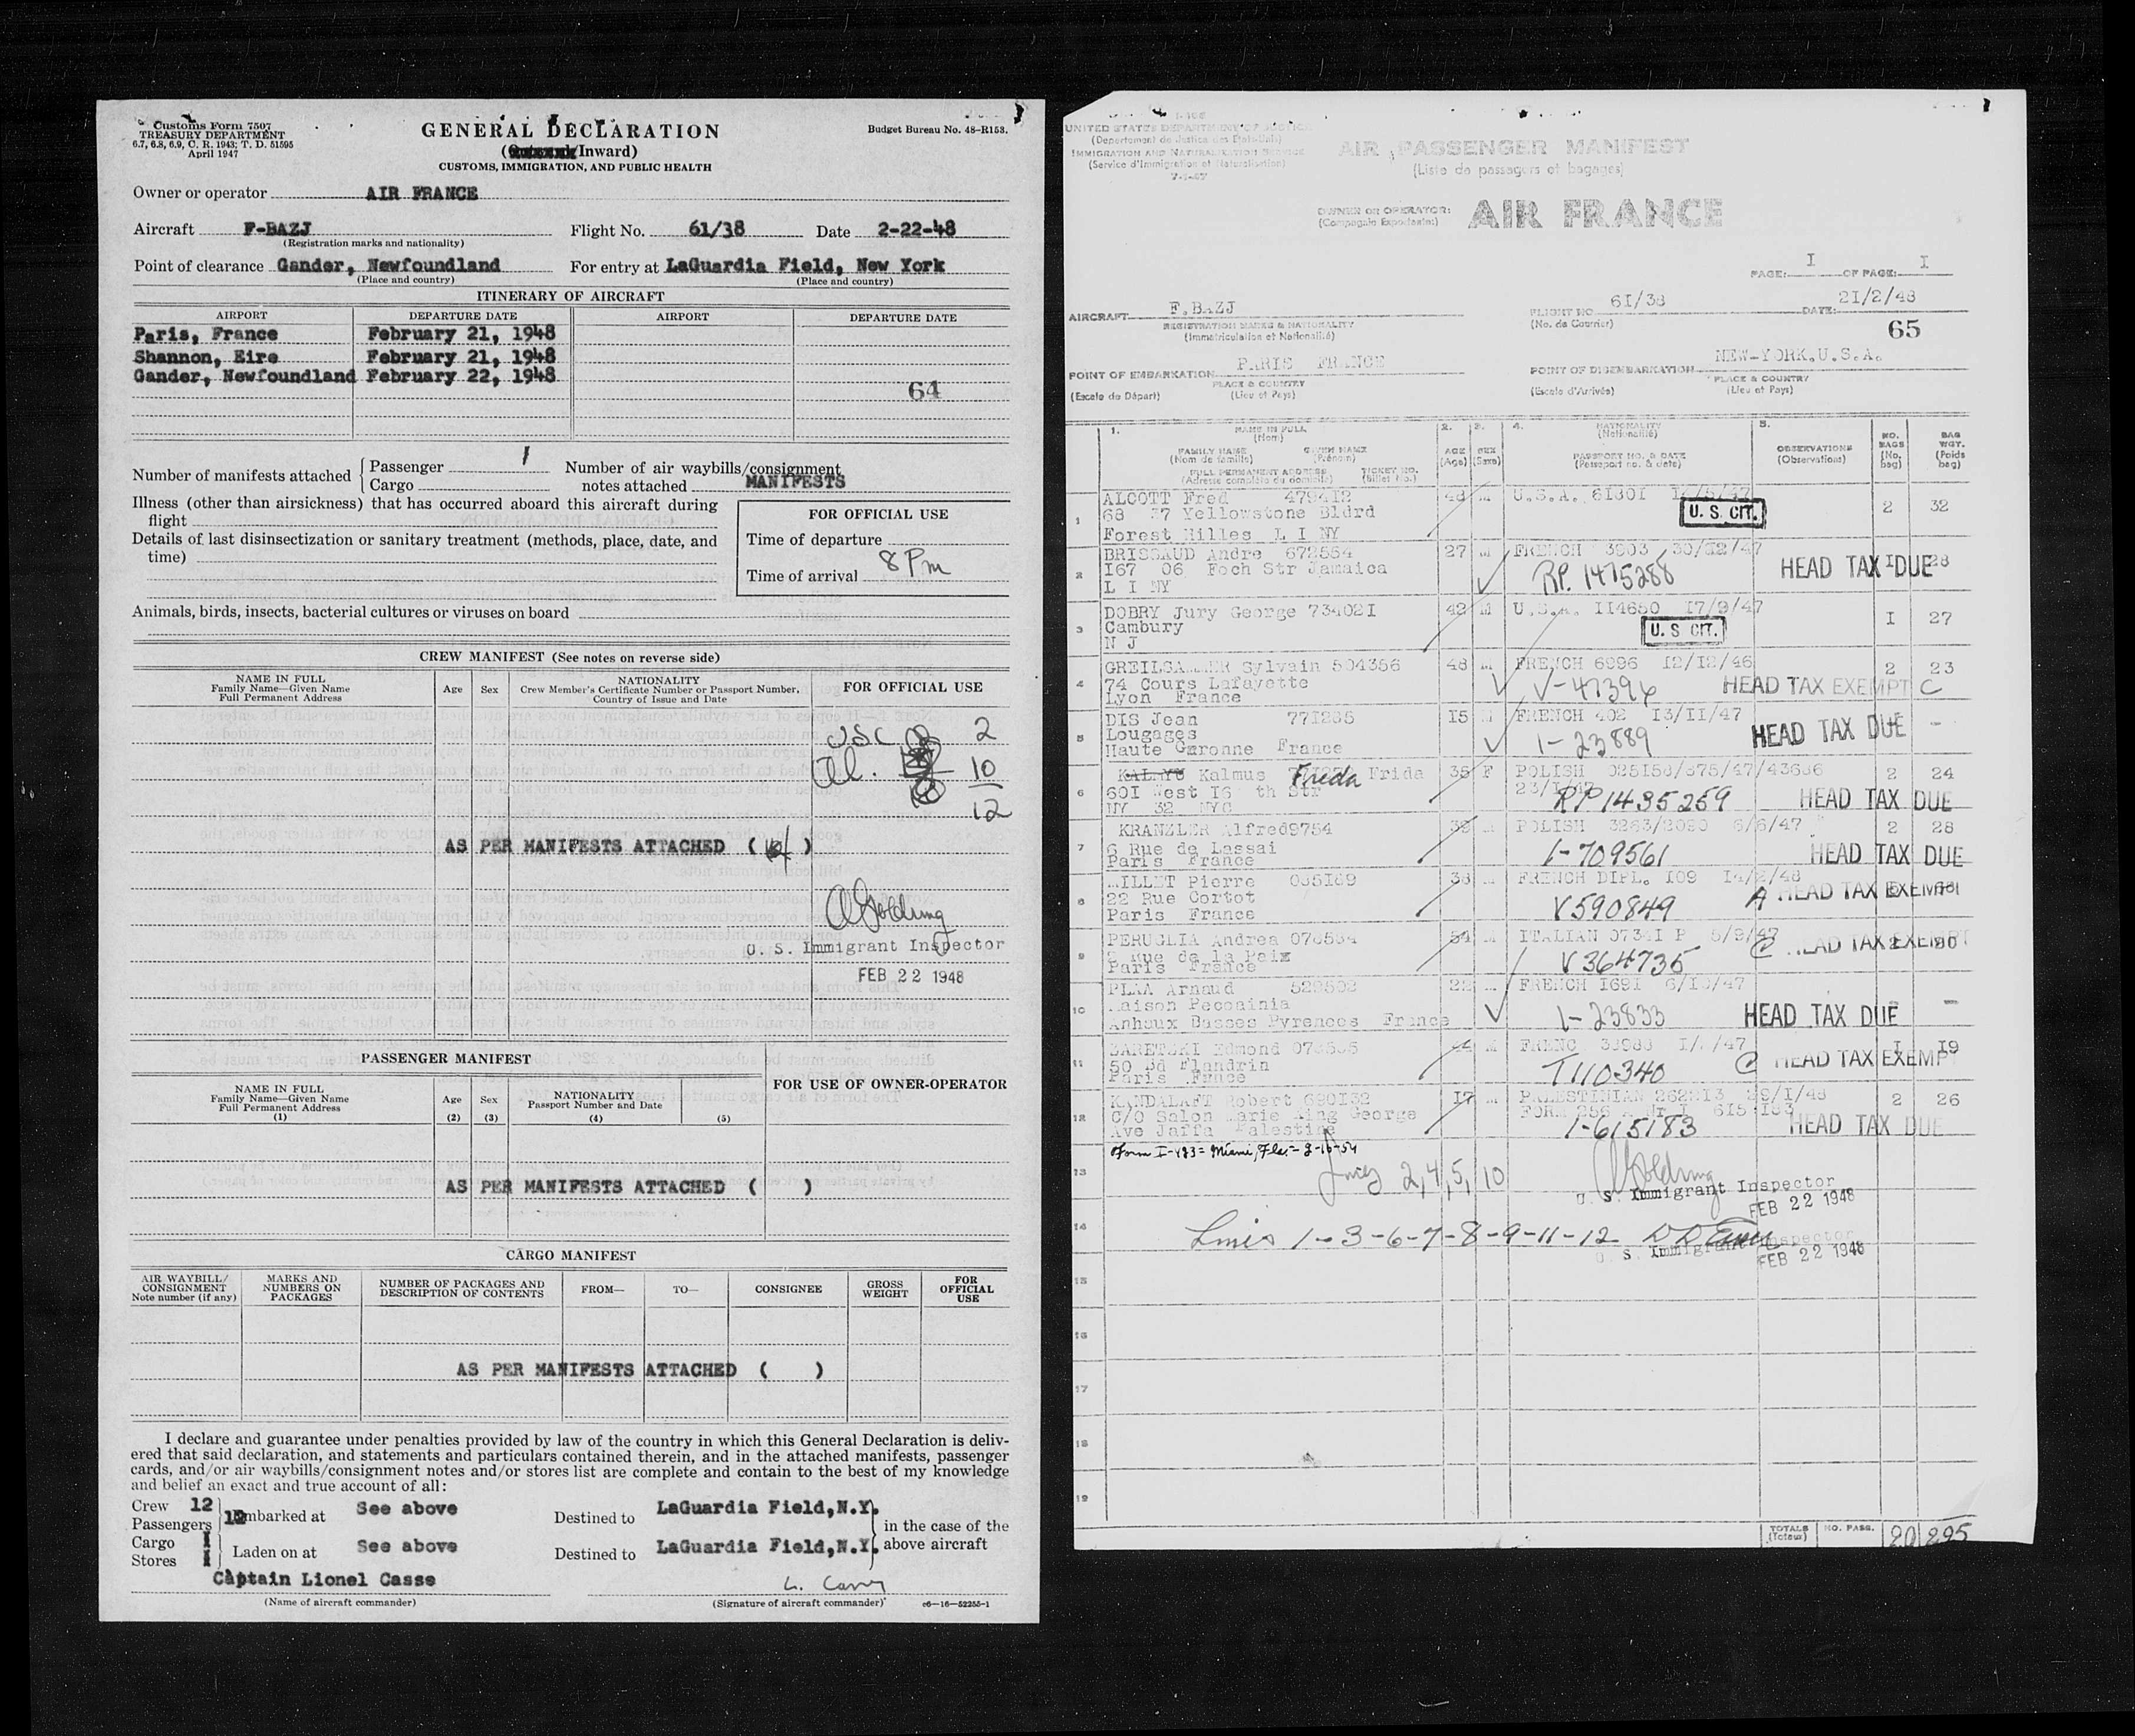 Customs Form 7507
TREASURY DEPARTMENT
6.7, 6.8, 6.9, C. R. 1943; T. D. 51595
April 1947
GENERAL DECLARATION
(Inward)
CUSTOMS, IMMIGRATION, AND PUBLIC HEALTH
Budget Bureau No. 48-R153.
Owner or operator AIR FRANCE
Aircraft F-BAZJ Flight No. 61/38 Date 2-22-48
(Registration marks and nationality)
Point of clearance Gander, Newfoundland For entry at LaGuardia Field, New York
(Place and country) (Place and country)
ITINERARY OF AIRCRAFT
AIRPORT DEPARTURE DATE AIRPORT DEPARTURE DATE
Paris, France February 21, 1948
Shannon, Eire February 21, 1948
Gander, Newfoundland February 22, 1948
64
Number of manifests attached { Passenger 1
Cargo
Number of air waybills/consignment
notes attached MANIFESTS
Illness (other than airsickness) that has occurred aboard this aircraft during
flight
Details of last disinsectization or sanitary treatment (methods, place, date, and
time)
FOR OFFICIAL USE
Time of departure
Time of arrival 8 Pm
Animals, birds, insects, bacterial cultures or viruses on board
CREW MANIFEST (See notes on reverse side)
NAME IN FULL
Family Name—Given Name
Full Permanent Address
Age Sex
NATIONALITY
Crew Member's Certificate Number or Passport Number,
Country of Issue and Date
FOR OFFICIAL USE
USC 2
Al. 10
12
AS PER MANIFESTS ATTACHED ( )
U. S. Immigrant Inspector
FEB 22 1948
PASSENGER MANIFEST
NAME IN FULL
Family Name—Given Name
Full Permanent Address
(1)
Age
(2)
Sex
(3)
NATIONALITY
Passport Number and Date
(4)
(5)
FOR USE OF OWNER-OPERATOR
AS PER MANIFESTS ATTACHED ( )
CARGO MANIFEST
AIR WAYBILL/
CONSIGNMENT
Note number (if any)
MARKS AND
NUMBERS ON
PACKAGES
NUMBER OF PACKAGES AND
DESCRIPTION OF CONTENTS
FROM— TO— CONSIGNEE
GROSS
WEIGHT
FOR
OFFICIAL
USE
AS PER MANIFESTS ATTACHED ( )
I declare and guarantee under penalties provided by law of the country in which this General Declaration is deliv-
ered that said declaration, and statements and particulars contained therein, and in the attached manifests, passenger
cards, and/or air waybills/consignment notes and/or stores list are complete and contain to the best of my knowledge
and belief an exact and true account of all:
Crew 12
Passengers 12 Embarked at See above Destined to LaGuardia Field,N.Y.
Cargo 1
Stores 1 Laden on at See above Destined to LaGuardia Field,N.Y.
in the case of the
above aircraft
Captain Lionel Casse
(Name of aircraft commander) (Signature of aircraft commander) c6—16—52255-1
UNITED STATES DEPARTMENT OF JUSTICE
(Departement de Justice des Etats-Unis)
IMMIGRATION AND NATURALIZATION SERVICE
(Service d'Immigration et Naturalisation)
7-1-47
AIR PASSENGER MANIFEST
(Liste de passagers et bagages)
OWNER OR OPERATOR:
(Compagnie Exportante:)
AIR FRANCE
PAGE: I OF PAGE: I
AIRCRAFT F.BAZJ
REGISTRATION MARKS & NATIONALITY
(Immatriculation et Nationalité)
FLIGHT NO 6I/38
(No. de Courrier)
DATE: 2I/2/48
65
POINT OF EMBARKATION PARIS FRANCE
(Escale de Départ)
PLACE & COUNTRY
(Lieu et Pays)
POINT OF DISEMBARKATION NEW-YORK.U.S.A.
(Escale d'Arrivée)
PLACE & COUNTRY
(Lieu et Pays)
1. NAME IN FULL
(Nom)
FAMILY NAME GIVEN NAME
(Nom de famille) (Prénom)
FULL PERMANENT ADDRESS TICKET NO.
(Adresse complète du domicile) (Billet No.)
2. AGE (Age)
3. SEX (Sexe)
4. NATIONALITY
(Nationalité)
PASSPORT NO. & DATE
(Passeport no. & date)
5. OBSERVATIONS
(Observations)
NO. BAGS (No. bag)
BAG WGT. (Poids bag)
1 ALCOTT Fred 479412 48 M U.S.A. 61801 2 32
68 37 Yellowstone Bldrd U. S. CIT.
Forest Hilles L I NY
2 BRISSAUD Andre 672554 27 M FRENCH 3903 30/12/47 I 28
I67 06 Foch Str Jamaica RP. 1475288 HEAD TAX DUE
L I NY
3 DOBRY Jury George 73402I 42 M U.S.A. II4650 I7/9/47 I 27
Cambury U. S CIT.
N J
4 Sylvain 504356 48 M FRENCH 6996 I2/I2/46 2 23
74 Cours Lafayette V-47396 HEAD TAX EXEMPT C
Lyon France
5 DIS Jean 771285 I5 M FRENCH 402 I3/II/47 -
Lougages 1-23889 HEAD TAX DUE
Haute Garonne France
6 Kalmus Freda Frida 35 F POLISH 2 24
60I West I6 th Str RP 1435259 HEAD TAX DUE
NY 32 NYC
7 KRANZLER Alfred9754 39 M POLISH 3263/2090 6/6/47 2 28
6 Rue de Lassai 1-709561 HEAD TAX DUE
Paris France
8 MILLET Pierre 035I69 38 M FRENCH DIPL. I09 I4/2/48
22 Rue Cortot V590849 A HEAD TAX EXEMPT
Paris France
9 PERUGLIA Andrea 54 M ITALIAN 5/9/47
2 Rue de la Paix V364735 C HEAD TAX EXEMPT
Paris France
10 PLAA Arnaud 529502 22 M FRENCH I69I 6/I0/47 -
Maison Pecoainia 1-23833 HEAD TAX DUE
Anhaux Basses Pyrenees France
11 ZARETSKI Edmond 44 M I I9
50 Bd Flandrin T110340 C HEAD TAX EXEMP
Paris France
12 KANDALAFT Robert 690I32 I7 M PALESTINIAN 262213 29/I/48 2 26
C/O Salon Marie King George FORM 256 A Nr I 615 183
Ave Jaffa Palestine 1-615183 HEAD TAX DUE
Form I-423= Miami, Fla.- 2-16-54
13 Lines 2, 4, 5, 10
U. S. Immigrant Inspector
FEB 22 1948
14 Lines 1-3-6-7-8-9-11-12
U. S. Immigrant Inspector
FEB 22 1948
15
16
17
18
19
TOTALS
(Totaux)
NO. PASS. 20 295